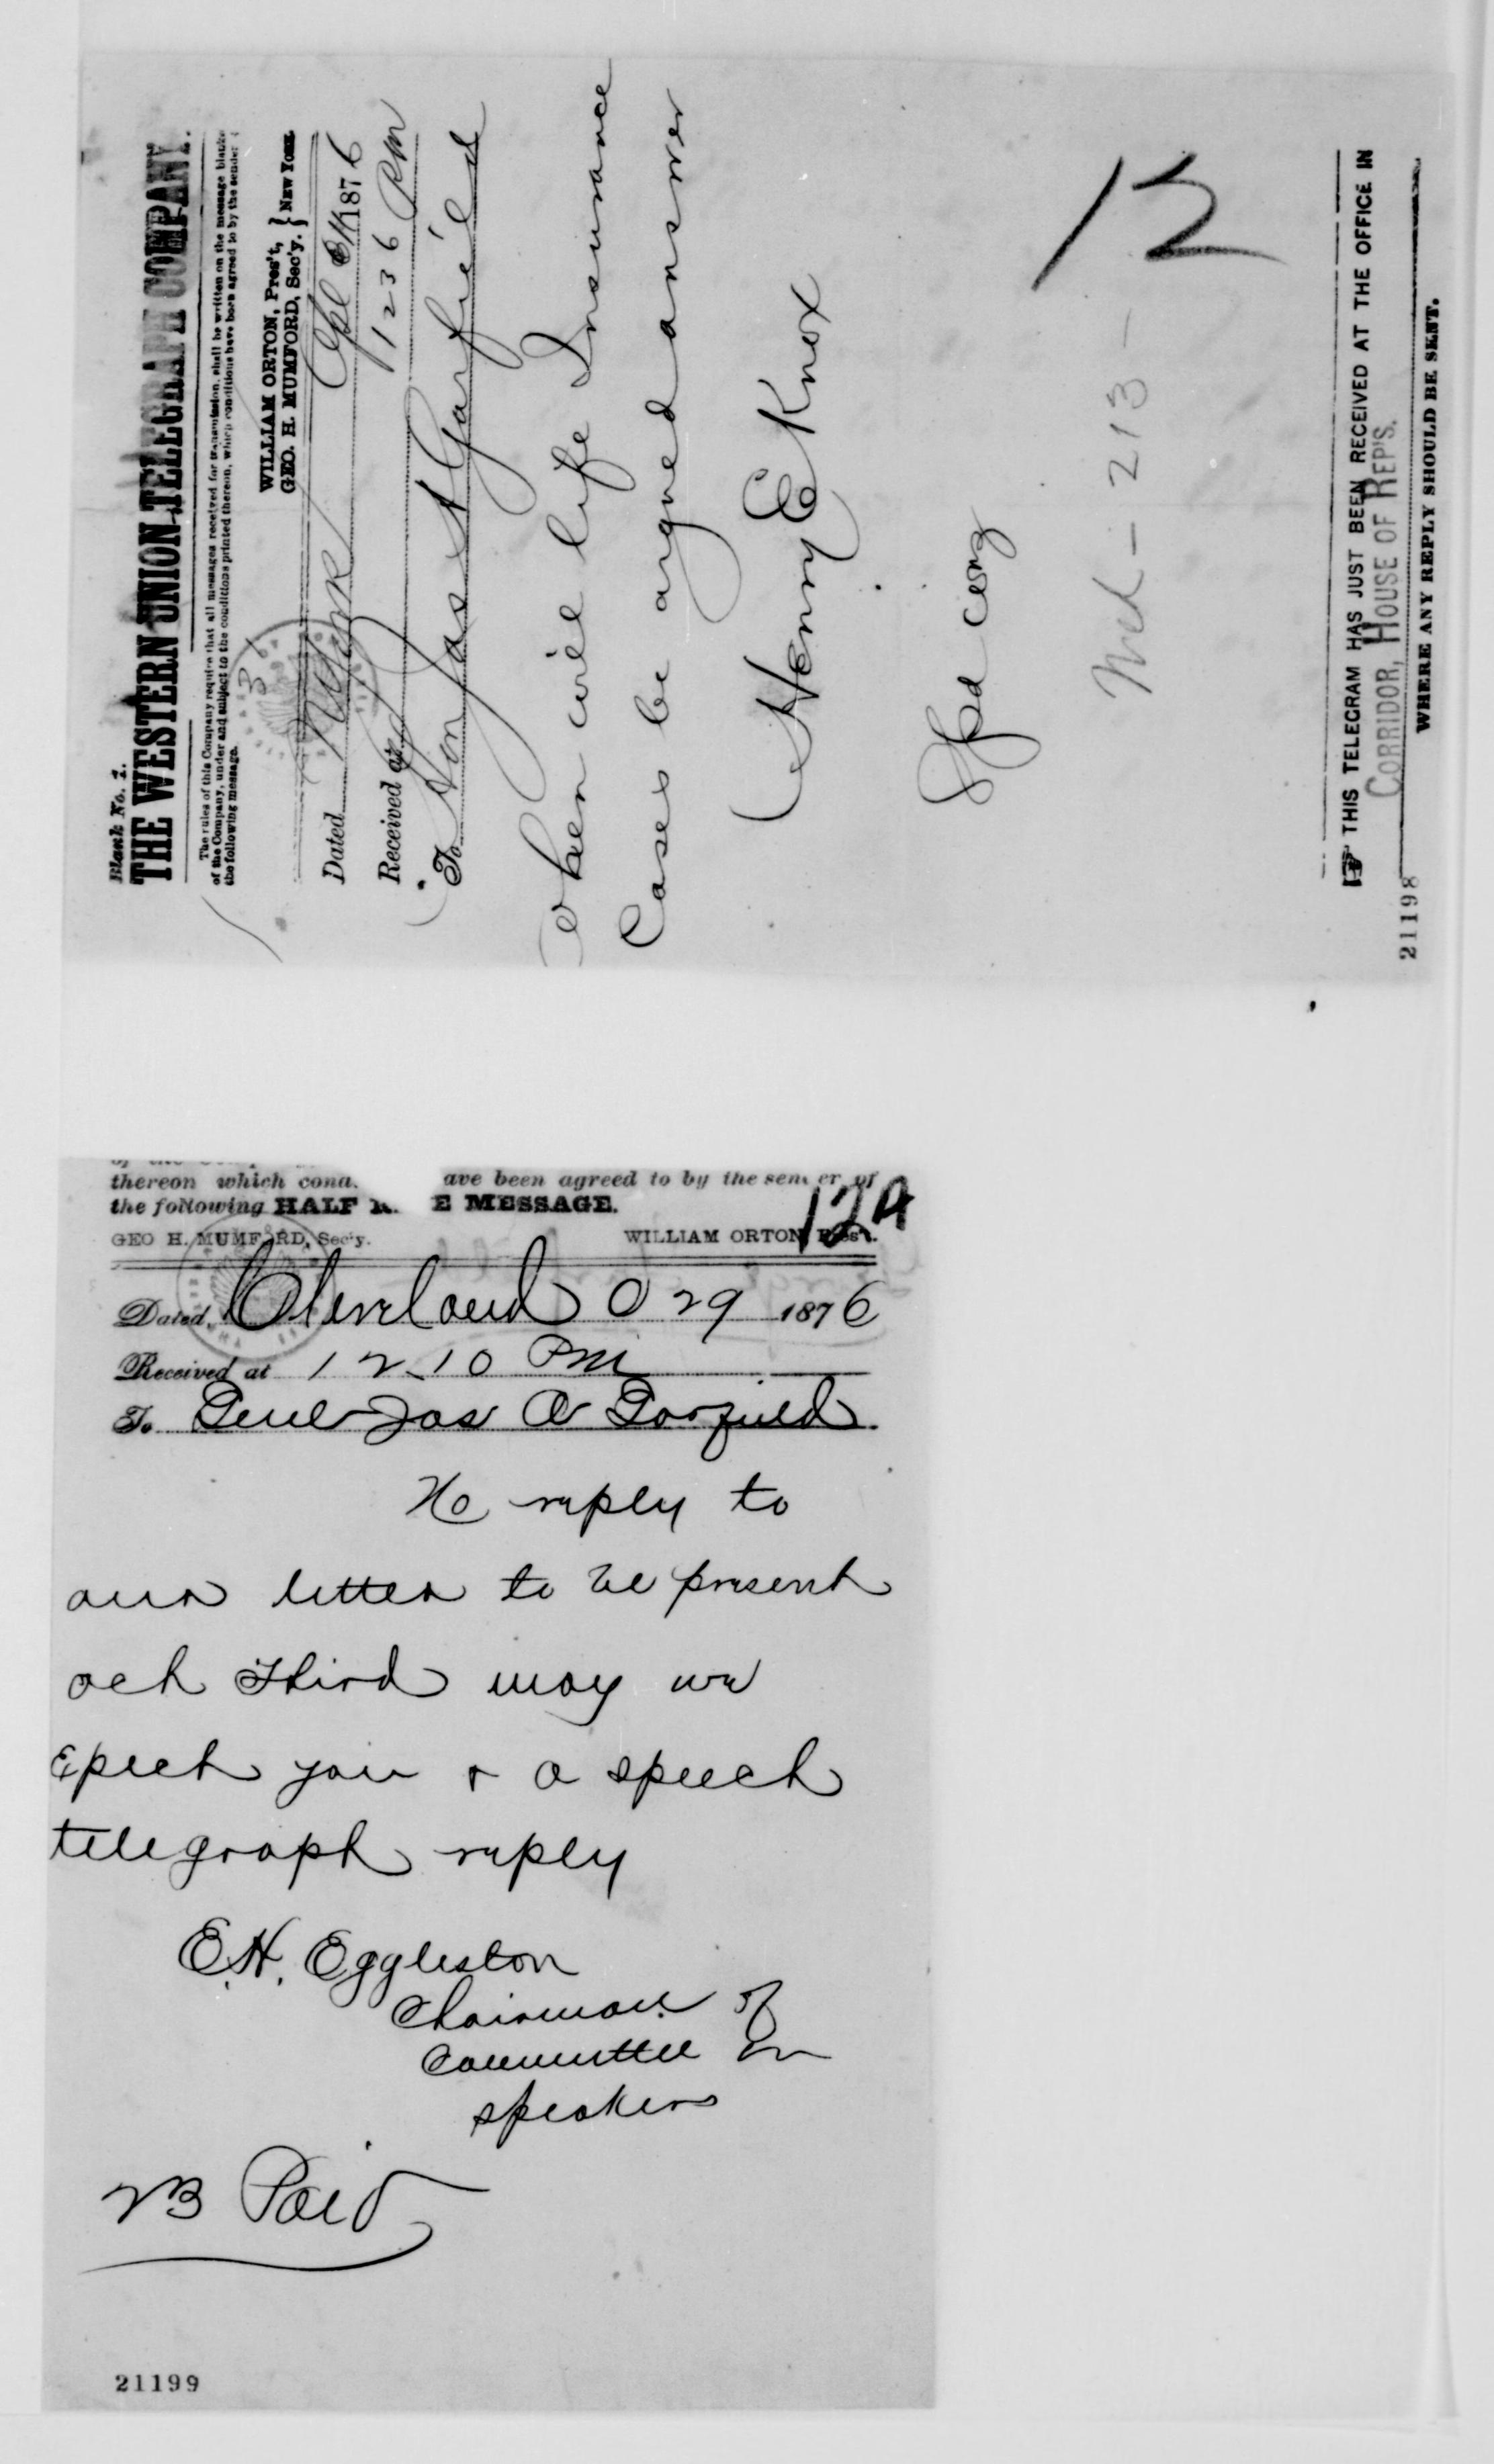 Blank No. 1.
THE WESTERN UNION TELEGRAPH COMPANY.
The rules of this Company require that all messages received for transmission, shall be written on the message blanks
of the Company, under and subject to the conditions printed thereon, which conditions have been agreed to by the sender
the following message.
WILLIAM ORTON, Pres't,
GEO. H. MUMFORD, Sec'y. } NEW YORK
31
Dated N York Apl 1876
Received at 1236 Pm
To Hon Jas A Garfield
When will life Insurance
Cases be argued answer
Henry E Knox
Pd
12
213
THIS TELEGRAM HAS JUST BEEN RECEIVED AT THE OFFICE IN
CORRIDOR, HOUSE OF REP'S.
WHERE ANY REPLY SHOULD BE SENT.
21198
thereon which cond. ave been agreed to by the sender of
the following HALF R E MESSAGE.
124
GEO H. MUMFORD, Sec'y. WILLIAM ORTON, Pres't.
Dated, Cleveland O 29 1876
Received at 12.10 Pm
To Genl Jas A Garfield
No reply to
our letter to be present
Oct Third may we
Epect you & a speech
telegraph reply
E.H. Eggleston
Chairman of
Committee on
speakers
23 Paid
21199